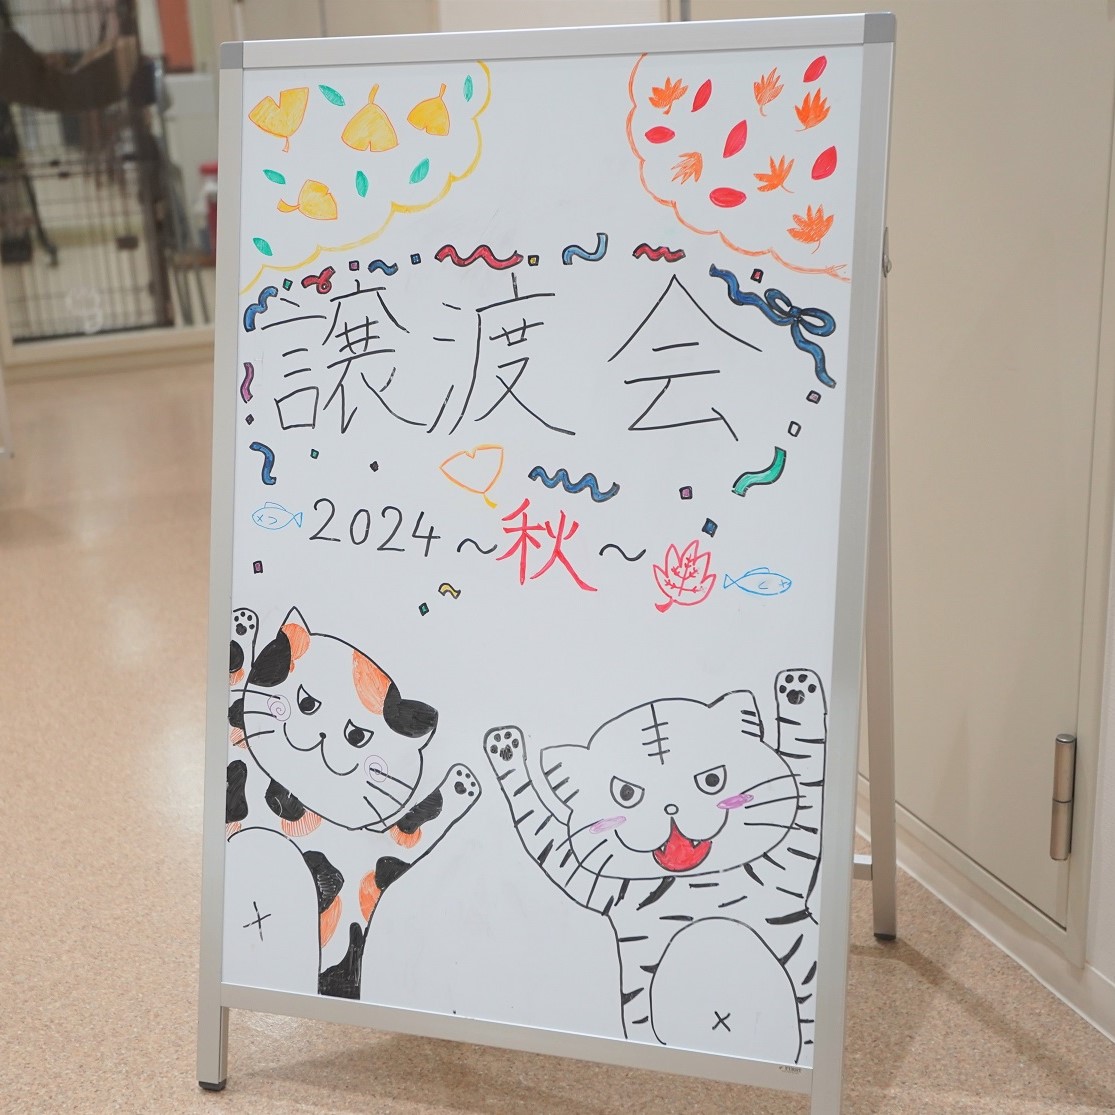 譲渡会
2024~秋~